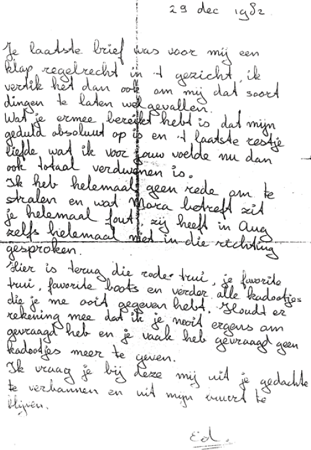 29 dec 1982
Je laatste brief was voor mij een
klap regelrecht in 't gezicht, ik
vertik het dan ook om mij dat soort
dingen te laten welgevallen.
Wat je ermee bereikt hebt is dat mijn
geduld absoluut op is en 't laatste restje
liefde wat ik voor jouw voelde nu dan
ook totaal verdwenen is.
Ik heb helemaal geen rede om te
stralen en wat Mara betreft zit
je helemaal fout, zij heeft in Aug
zelfs helemaal niet in die richting
gesproken.
Hier is terug die rode trui, je favorite
trui, favorite boots en verder alle kadootjes
die je me ooit gegeven hebt. Houdt er
rekening mee dat ik je nooit ergens om
gevraagd heb en je vaak heb gevraagd geen
kadootjes meer te geven.
Ik vraag je bij deze mij uit je gedachte
te verbannen en uit mijn buurt te
blijven.
Ed.